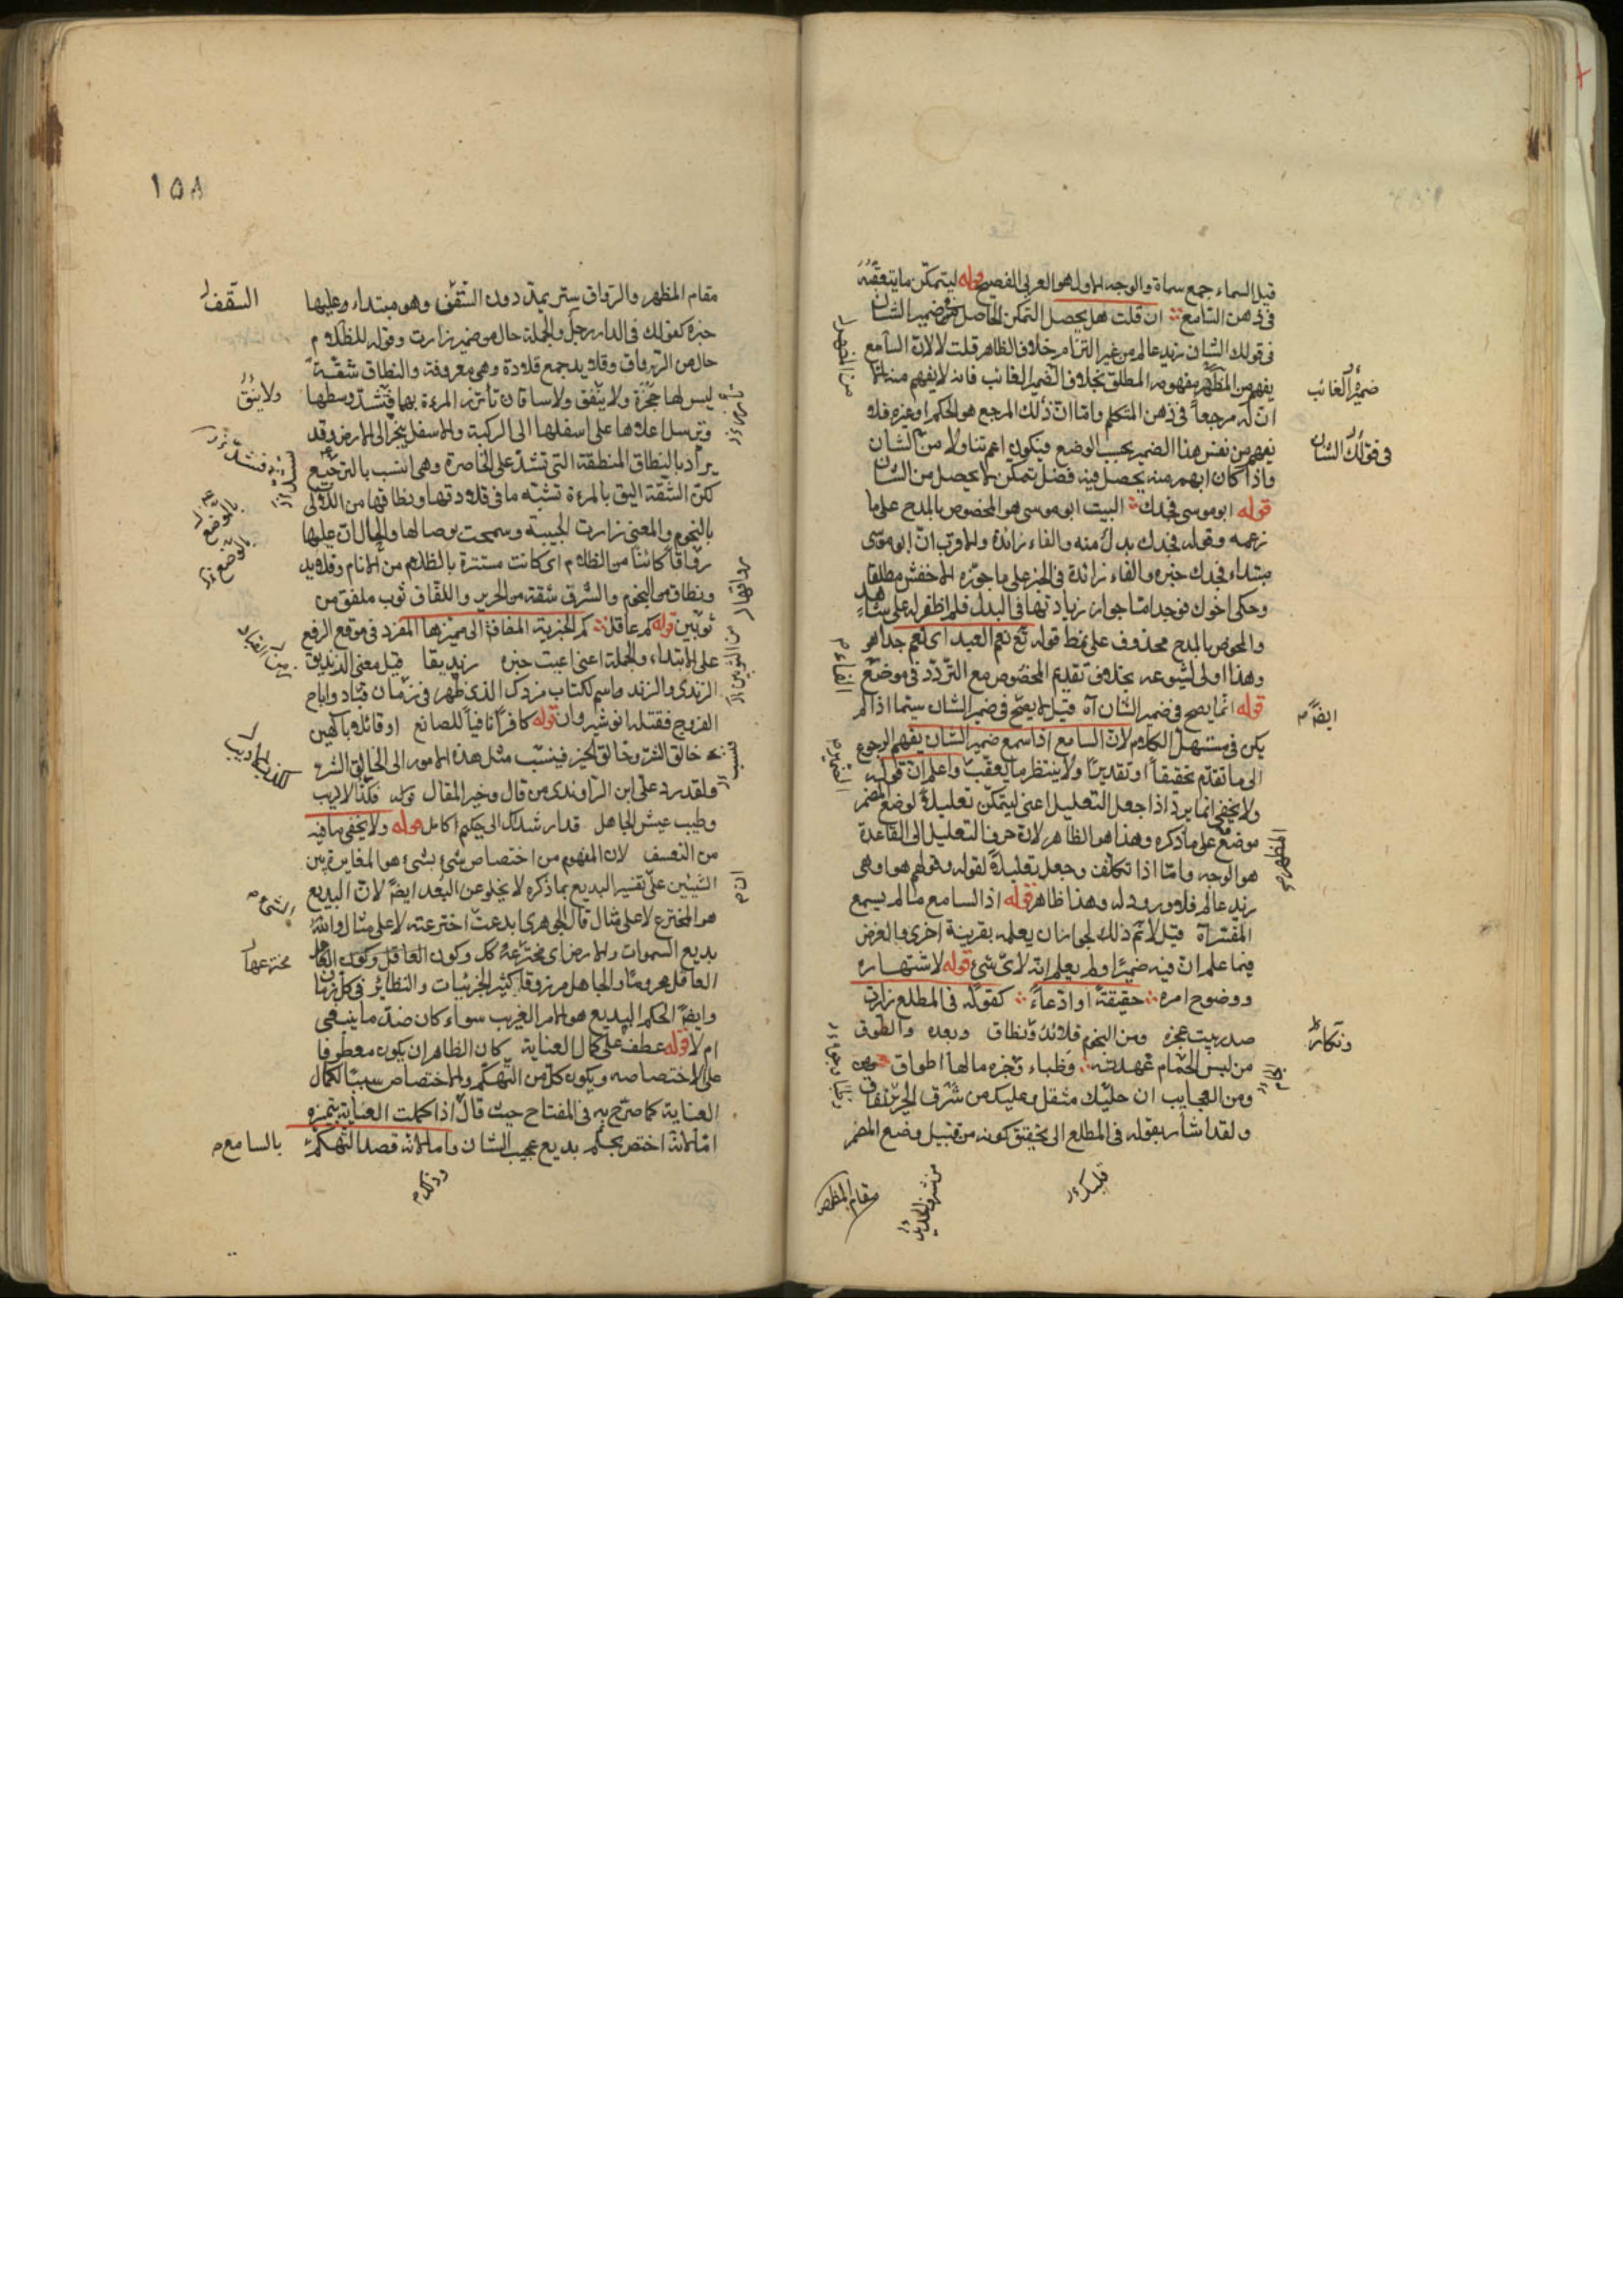 قيل السماء جمع سماة والوجه الاول هو العربي الفصيح قوله ليتمكن ما يتعقبه
في ذهن السامع ان قلت هل يحصل التمكن الحاصل من ضمير الشان
في قولك الشان زيد عالم من غير التزام خلاف الظاهر قلت لا لان السامع
يفهم من المظهر مفهومه المطلق بخلاف الضمير الغائب فانه لا يفهم منه الا
ان له مرجعا في ذهن المتكلم واما ان ذلك المرجع هو الحكم او غيره فلا
يفهم من نفس هذا الضمير بحسب الوضع فيكون اعم تناولا من الشان
واذا كان ابهم منه يحصل فيه فضل تمكن لا يحصل من الشان
قوله ابو موسى فجدك البيت ابو موسى هو المخصوص بالمدح على ما
زعمه وقوله فجدك بدل منه والفاء زائدة والاقرب ان ابو موسى
مبتداء فجدك خبره والفاء زائدة في الخبر على ما جوزه الاخفش مطلقا
وحكى اخوك فوجد اما جواز زيادتها في البدل فلم اظفر له على شاهد
والمخصوص بالمدح محذوف على نمط قوله تع نعم العبد اى نعم جدا هو
وهذا اولى لشيوعه بخلاف تقديم المخصوص مع التردد في موضع
قوله انما يصح في ضمير الشان آه قيل لا يصح في ضمير الشان سيما اذا لم
يكن في مستهل الكلام لان السامع اذا سمع ضمير الشان يفهم الرجوع
الى ما تقدم تحقيقا او تقديرا ولا ينتظر ما يعقب واعلم ان قوله
ولا يخفى انما يرد اذا جعل التعليل اعنى ليتمكن تعليلا لوضع المضمر
موضع على ما ذكره وهذا هو الظاهر لان صرف التعليل الى القاعدة
هو الوجه واما اذا تكلف وجعل تعليلا لقوله وقولهم هو او هى
زيد عالم فلا ورود له وهذا ظاهر قوله اذ السامع ما لم يسمع
المفسر آه قيل لا تم ذلك لجواز ان يعلمه بقرينة اخرى والغرض
فيما علم ان فيه ضميرا ولم يعلم انه لاى شئ قوله لاشتهاره
ووضوح امره حقيقة او ادعاء كقوله في المطلع زارت
صدر بيت عجزه ومن النجوم قلائد ونطاق وبعده والطوق
من لبس الحمام عهدته وظباء وجره ما لها اطواق
ومن العجايب ان حليك مثقل وعليك من شرق الحرير لفاق
ولقد اشار بقوله في المطلع الى تحقيق كونه من قبيل وضع المضمر
ضمير الغائب
في قولك الشان
ايضا م
المظهر م
الفاء م
الضمير م
وتكاره
قلبك
من شرق الحرير
مقام المظهر
١٥٨
مقام المظهر والرواق ستر يمد دون السقف وهو مبتداء وعليها
خبره كقولك في الدار رجل والجملة حال من ضمير زارت وقوله للظلام
حال من الرواق وقلايد جمع قلادة وهى معروفة والنطاق شقة
ليس لها حجزة ولا ينفق ولا ساقان تأتزر المرءة بها فتشد وسطها
وترسل اعلاها على اسفلها الى الركبة والاسفل ينجر الى الارض وقد
يراد بالنطاق المنطقة التى تشد على الخاصرة وهى انسب بالترجيع
لكن الشقة اليق بالمرءة تشبه ما في قلادتها ونطاقها من اللآلى
بالنجوم والمعنى زارت الحبيبة وسمحت بوصالها والحال ان عليها
رواقا كائنا من الظلام اى كانت مستترة بالظلام من الانام وقلايد
ونطاق من النجوم والشرق شقة من الحرير واللفاق ثوب ملفق من
ثوبين قوله كم عاقل كم الخبرية المضافة الى مميزها المفرد في موقع الرفع
على الابتداء والجملة اعنى اعيت خبره زنديقا قيل معنى الزنديق
الزندى والزند اسم لكتاب مزدك الذى ظهر في زمان قباد واباح
الفروج فقتله انوشيروان قوله كافرا نافيا للصانع او قائلا بالهين
خالق الشر وخالق الخير فينسب مثل هذه الامور الى الخالق الشر
ولقد رد على ابن الراوندى من قال وخير المقال قوله فكذا الاديب
وطيب عيش الجاهل قد ارشداك الى حكيم كامل قوله ولا يخفى ما فيه
من التعسف لان المفهوم من اختصاص شئ بشئ هو المغايرة بين
الشيئين على تفسير البديع بما ذكره لا يخلو عن البعد ايضا لان البديع
هو المخترع لا على مثال قال الجوهرى ابدعت اخترعته لا على مثال والله
بديع السموات والارض اى مخترعه كل وكون العاقل وكون العاقل
العاقل محروما والجاهل مرزوقا كثير الجزئيات والنظائر في كل زمان
وايضا الحكم البديع هو الامر الغريب سواء كان ضد ما ينبغى
ام لا قوله عطف على كمال العناية كان الظاهر ان يكون معطوفا
على الاختصاصه ويكون كل من التهكم والاختصاص سببا لكمال
العناية كما صرح به في المفتاح حيث قال اذا كملت العناية بتميزه
اما لانه اختص بحكم بديع عجيب الشان واما لانه قصد التهكم
السقف
ولا نيفق
بالوضع
بالوضع
الشئ م
مخترعها
بالسامع م